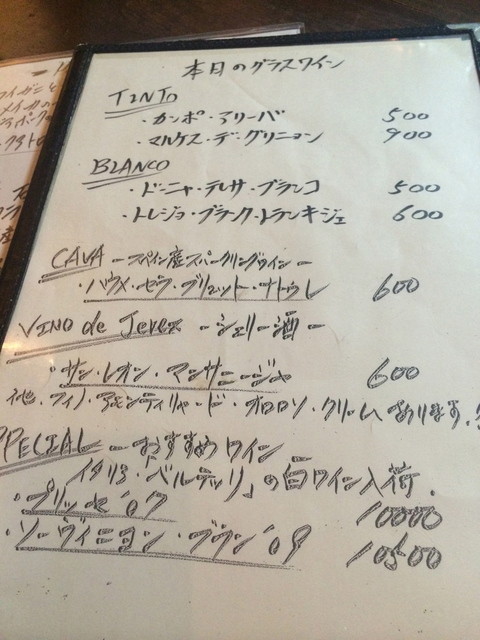 本日のグラスワイン
TINTO
・カンポ・アリーバ 500
・マルケス・デ・グリニョン 900
BLANCO
・ドーニャ・テレサ・ブランコ 500
・トレジョ・ブラーク・トランキジェ 600
CAVA －スペイン産スパークリングワイン－
・ハウメ・セラ・ブリュット・ナトゥレ 600
VINO de Jerez －シェリー酒－
・サン・レオン・マンサニージャ 600
他、フィノ・アモンティリャード・オロロソ・クリームあります。
SPECIAL －おすすめワイン
イタリア・「ベルテッリ」の白ワイン入荷.
・ブリッセ '07 10000
・ソーヴィニヨン・ブラン '09 10500